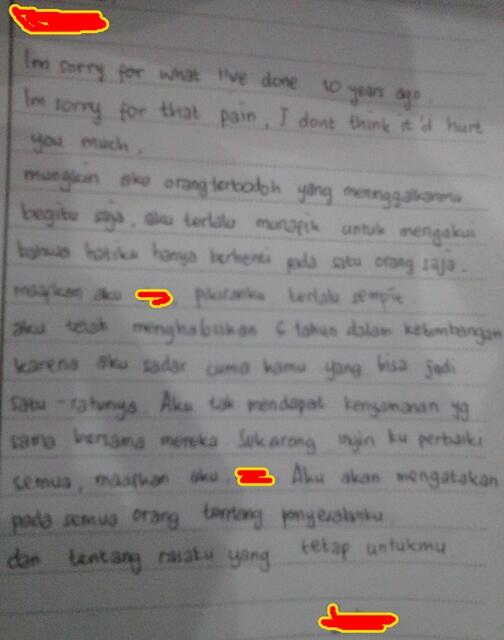 I'm sorry for what I've done 10 years ago.
I'm sorry for that pain, I dont think it'd hurt
you much.
mungkin aku orang terbodoh yang meninggalkanmu
begitu saja, aku terlalu munafik untuk mengakui
bahwa hatiku hanya berhenti pada satu orang saja.
maafkan aku pikiranku terlalu sempit.
aku telah menghabiskan 6 tahun dalam kebimbangan
karena aku sadar cuma kamu yang bisa jadi
satu-satunya. Aku tak mendapat kenyamanan yg
sama bersama mereka Sekarang ingin ku perbaiki
semua, maafkan aku. Aku akan mengatakan
pada semua orang tentang penyesalanku
dan tentang rasaku yang tetap untukmu